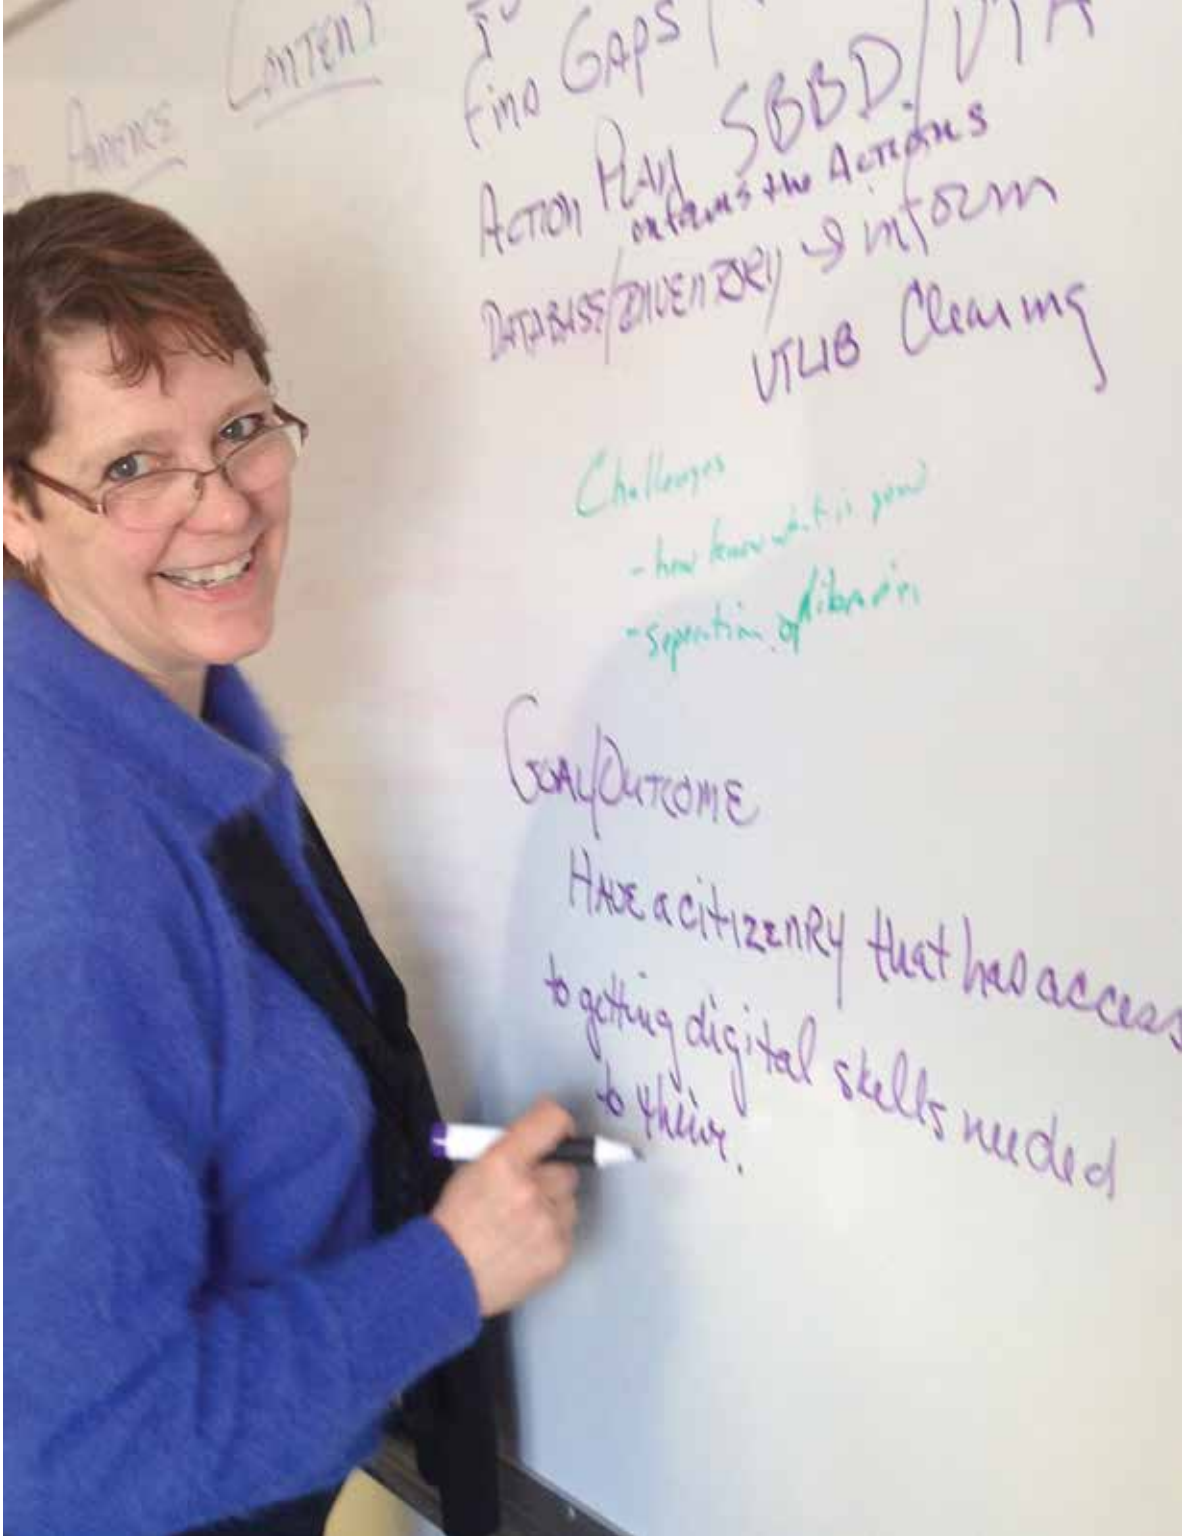 CONTENT
Find GAPS
ACTION PLAN SBBD/VTA
informs the Actions
DATABASE/INVENTORY → inform
VTLIB Clearing
Challenges
- how know what is good
- seperation of libraries
GOAL/OUTCOME
HAVE a citizenRY that has access
to getting digital skills needed
to thrive.